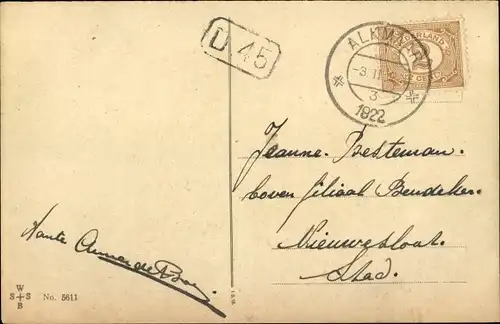 D 45
ALKMAAR
-3.II.
3
1922
NEDERLAND
2
CENT
Jeanne Besteman.
boven filiaal Beudeker.
Nieuwesloot.
Stad.
Tante Anna de Boer.
W
S+S
B
No. 5611